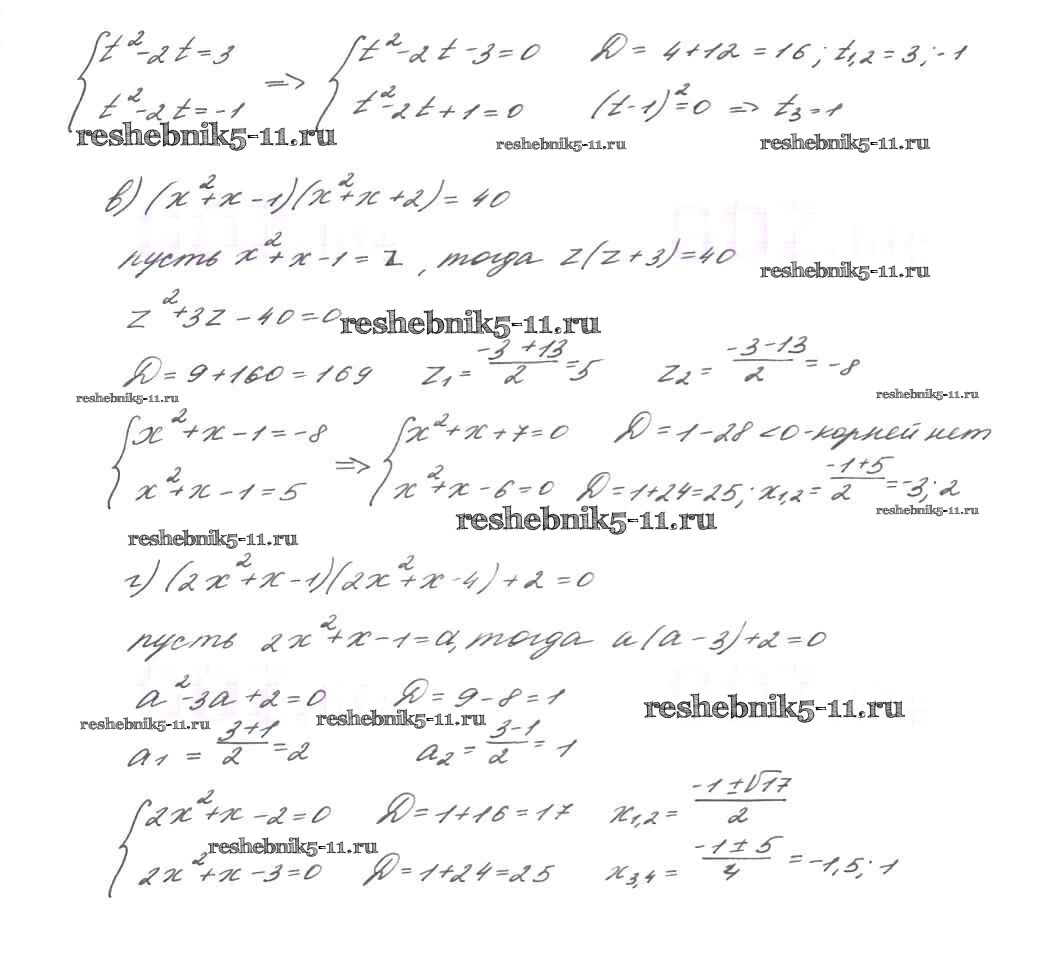 {t²-2t=3 => {t²-2t-3=0 D=4+12=16; t₁,₂=3; -1
{t²-2t=-1 {t²-2t+1=0 (t-1)²=0 => t₃=1
reshebnik5-11.ru reshebnik5-11.ru reshebnik5-11.ru
в) (x²+x-1)(x²+x+2)=40
пусть x²+x-1=z, тогда z(z+3)=40
reshebnik5-11.ru
z²+3z-40=0 reshebnik5-11.ru
D=9+160=169 z₁=(-3+13)/2=5 z₂=(-3-13)/2=-8
reshebnik5-11.ru reshebnik5-11.ru
{x²+x-1=-8 => {x²+x+7=0 D=1-28<0-корней нет
{x²+x-1=5 {x²+x-6=0 D=1+24=25; x₁,₂=(-1+5)/2=-3; 2
reshebnik5-11.ru reshebnik5-11.ru
reshebnik5-11.ru
г) (2x²+x-1)(2x²+x-4)+2=0
пусть 2x²+x-1=a, тогда a(a-3)+2=0
a²-3a+2=0 D=9-8=1
reshebnik5-11.ru reshebnik5-11.ru reshebnik5-11.ru
a₁=(3+1)/2=2 a₂=(3-1)/2=1
{2x²+x-2=0 D=1+16=17 x₁,₂=(-1±√17)/2
reshebnik5-11.ru
{2x²+x-3=0 D=1+24=25 x₃,₄=(-1±5)/4=-1,5; 1